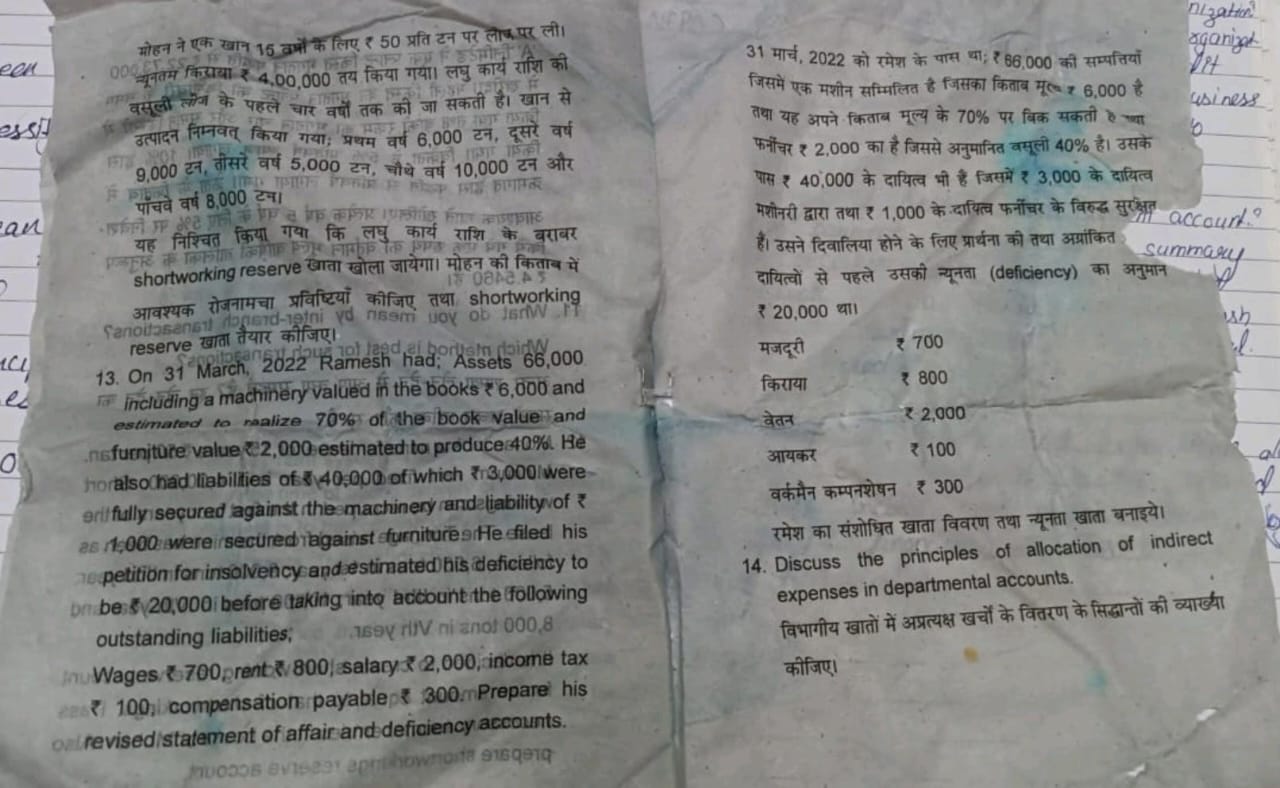 मोहन ने एक खान 15 वर्षों के लिए ₹ 50 प्रति टन पर लीज पर ली।
न्यूनतम किराया ₹ 4,00,000 तय किया गया। लघु कार्य राशि की
वसूली लीज के पहले चार वर्षों तक की जा सकती है। खान से
उत्पादन निम्नवत् किया गया; प्रथम वर्ष 6,000 टन, दूसरे वर्ष
9,000 टन, तीसरे वर्ष 5,000 टन, चौथे वर्ष 10,000 टन और
पाँचवे वर्ष 8,000 टन।
यह निश्चित किया गया कि लघु कार्य राशि के बराबर
shortworking reserve खाता खोला जायेगा। मोहन की किताब में
आवश्यक रोजनामचा प्रविष्टियाँ कीजिए तथा shortworking
reserve खाता तैयार कीजिए।
13. On 31 March, 2022 Ramesh had; Assets 66,000
including a machinery valued in the books ₹ 6,000 and
estimated to realize 70% of the book value and
furniture value ₹ 2,000 estimated to produce 40%. He
also had liabilities of ₹ 40,000 of which ₹ 3,000 were
fully secured against the machinery and liability of ₹
1,000 were secured against furniture. He filed his
petition for insolvency and estimated his deficiency to
be ₹ 20,000 before taking into account the following
outstanding liabilities;
Wages ₹ 700, rent ₹ 800, salary ₹ 2,000, income tax
₹ 100, compensation payable ₹ 300. Prepare his
revised statement of affair and deficiency accounts.
31 मार्च, 2022 को रमेश के पास था; ₹ 66,000 की सम्पत्तियाँ
जिसमें एक मशीन सम्मिलित है जिसका किताब ₹ 6,000 है
तथा यह अपने किताब मूल्य के 70% पर बिक सकती है
फर्नीचर ₹ 2,000 का है जिससे अनुमानित वसूली 40% है। उसके
पास ₹ 40,000 के दायित्व भी है जिसमें ₹ 3,000 के दायित्व
मशीनरी द्वारा तथा ₹ 1,000 के दायित्व फर्नीचर के विरुद्ध सुरक्षित
हैं। उसने दिवालिया होने के लिए प्रार्थना की तथा अग्रांकित
दायित्वों से पहले उसकी न्यूनता (deficiency) का अनुमान
₹ 20,000 था।
मजदूरी ₹ 700
किराया ₹ 800
वेतन ₹ 2,000
आयकर ₹ 100
वर्कमैन कम्पनशेषन ₹ 300
रमेश का संशोधित खाता विवरण तथा न्यूनता खाता बनाइये।
14. Discuss the principles of allocation of indirect
expenses in departmental accounts.
विभागीय खातों में अप्रत्यक्ष खर्चों के वितरण के सिद्धान्तों की व्याख्या
कीजिए।
account?
summary